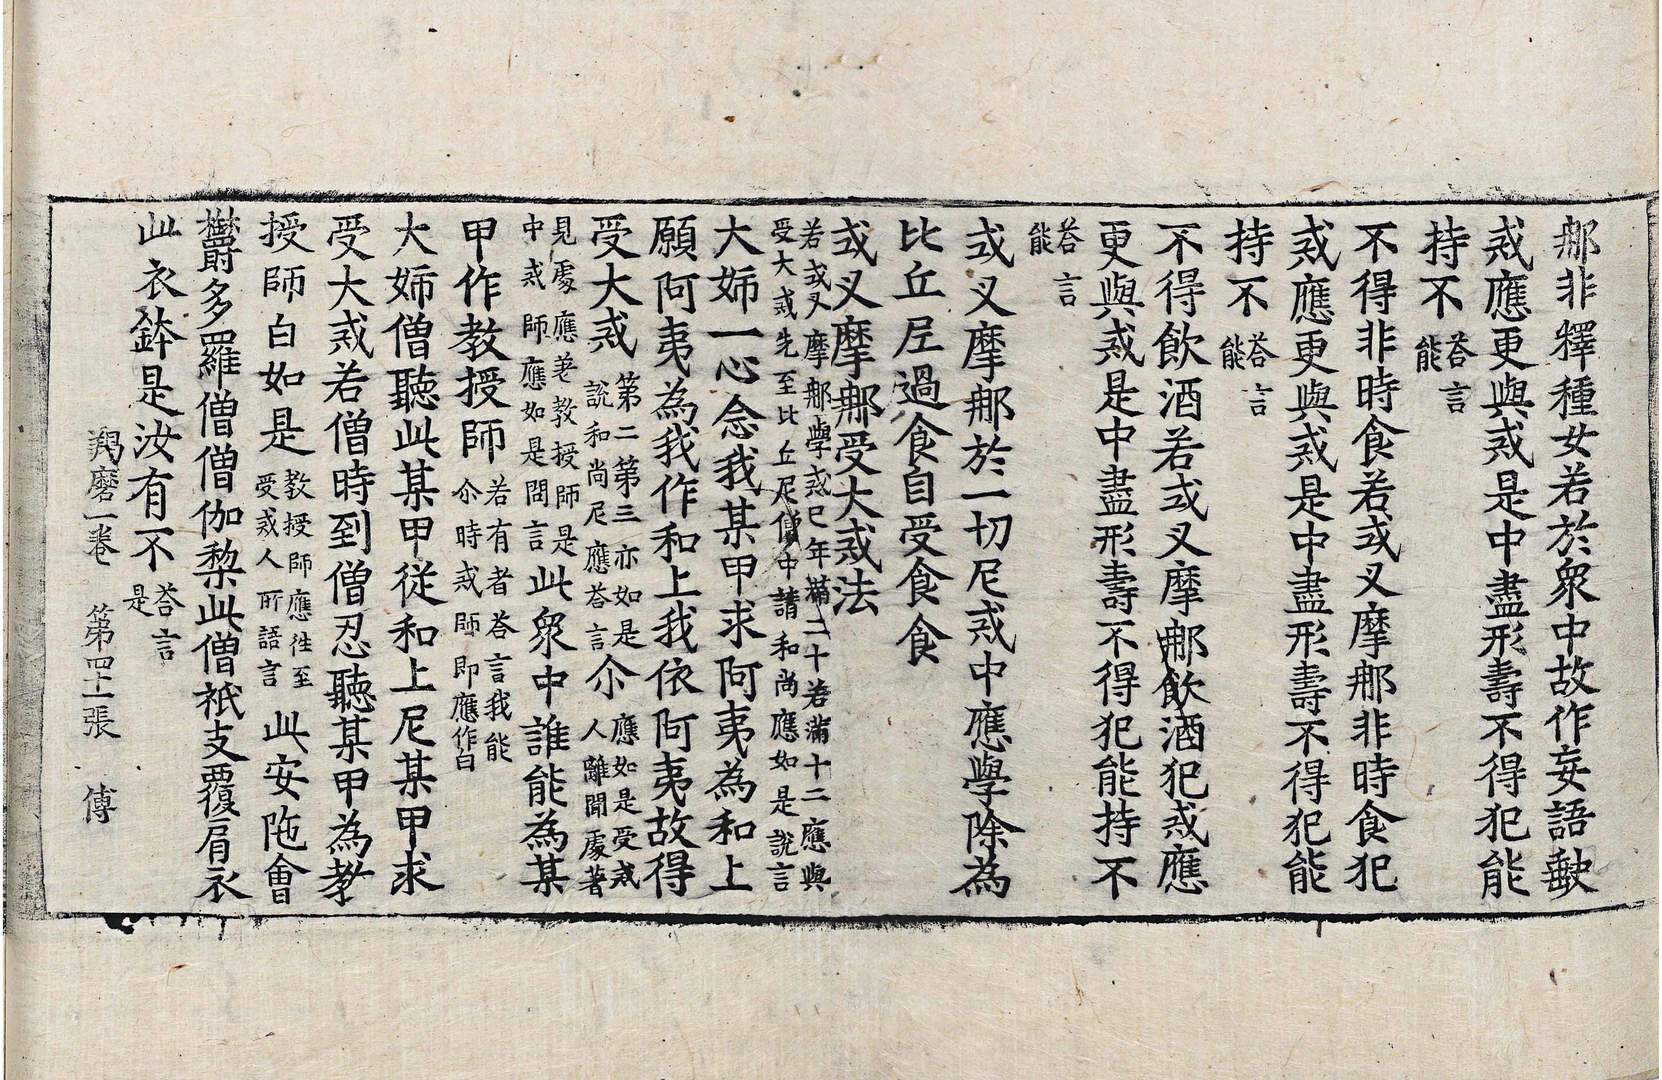 那非釋種女若於衆中故作妄語缺
戒應更與戒是中盡形壽不得犯能
持不答言能
不得非時食若式叉摩那非時食犯
戒應更與戒是中盡形壽不得犯能
持不答言能
不得飲酒若式叉摩那飲酒犯戒應
更與戒是中盡形壽不得犯能持不
答言能
式叉摩那於一切尼戒中應學除為
比丘尼過食自受食食
式叉摩那受大戒法
若式叉摩那學戒已年滿二十若滿十二應與
受大戒先至比丘尼僧中請和尚應如是說言
大姊一心念我某甲求阿夷為和上
願阿夷為我作和上我依阿夷故得
受大戒第二第三亦如是說和尚尼應答言尒應如是受戒人離聞處著
見處應差教授師是中戒師應如是問言此衆中誰能為某
甲作教授師若有者答言我能尒時戒師即應作白
大姊僧聽此某甲從和上尼某甲求
受大戒若僧時到僧忍聽某甲為教
授師白如是教授師應往至受戒人所語言此安陁會
欝多羅僧僧伽棃此僧祇支覆肩衣
此衣鉢是汝有不答言是
羯磨一卷 第四十一張 傅